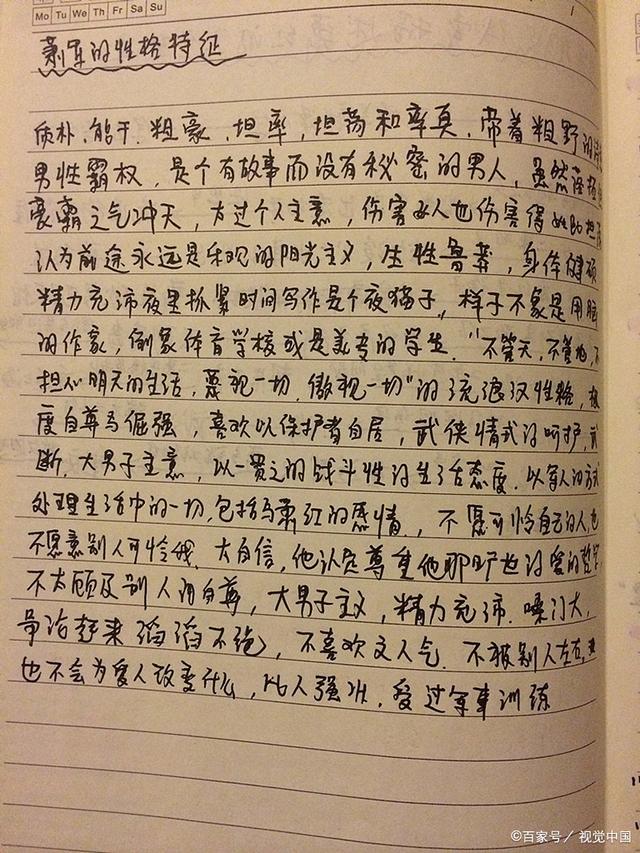 Mo Tu We Th Fr Sa Su
萧军的性格特征
质朴、能干、粗豪、坦率,坦荡和率真,带着粗野的
男性霸权,是个有故事而没有秘密的男人,虽然落拓
豪霸之气冲天,大过个人主意,伤害女人也伤害得如此坦
认为前途永远是乐观的阳光主义,生性鲁莽,身体健硕
精力充沛夜里抓紧时间写作是个夜猫子,样子不象是用脑
的作家,倒象体育学校或是美专的学生."不管天,不管地,不
担心明天的生活,蔑视一切,傲视一切"的流浪汉性格,极
度自尊与倔强,喜欢以保护者自居,武侠情式的呵护,武
断.大男子主意,以一贯之的战斗性的生活态度.以军人的方式
处理生活中的一切.包括与萧红的感情.,不愿可怜自己的人,也
不愿意别人可怜我.大自信,他认
尊重他
不太顾及别人的自尊,大男子主义,精力充沛.嗓门大,
争论起来滔滔不绝,不喜欢文人气.不被别人左右,
也不会为爱人改变什么,比人强壮.受过军事训练
©百家号/视觉中国